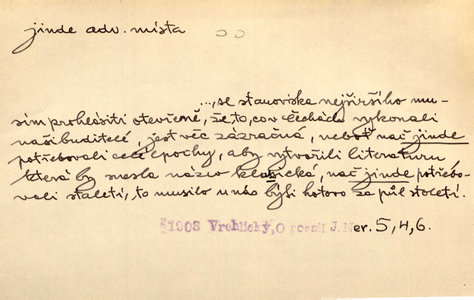 jinde adv. místa
..., se stanoviska nejširšího mu-
sím prohlásiti otevřeně, že to, co v Čechách vykonali
naši buditelé, jest věc zázračná, neboť nač jinde
potřebovali celé epochy, aby vytvořili literaturu
která by snesla název klasická, nač jinde potřebo-
vali staletí, to musilo u nás býti hotovo za půl století.
1903 Vrchlický, O poesii J. Ner. 5, 4, 6.